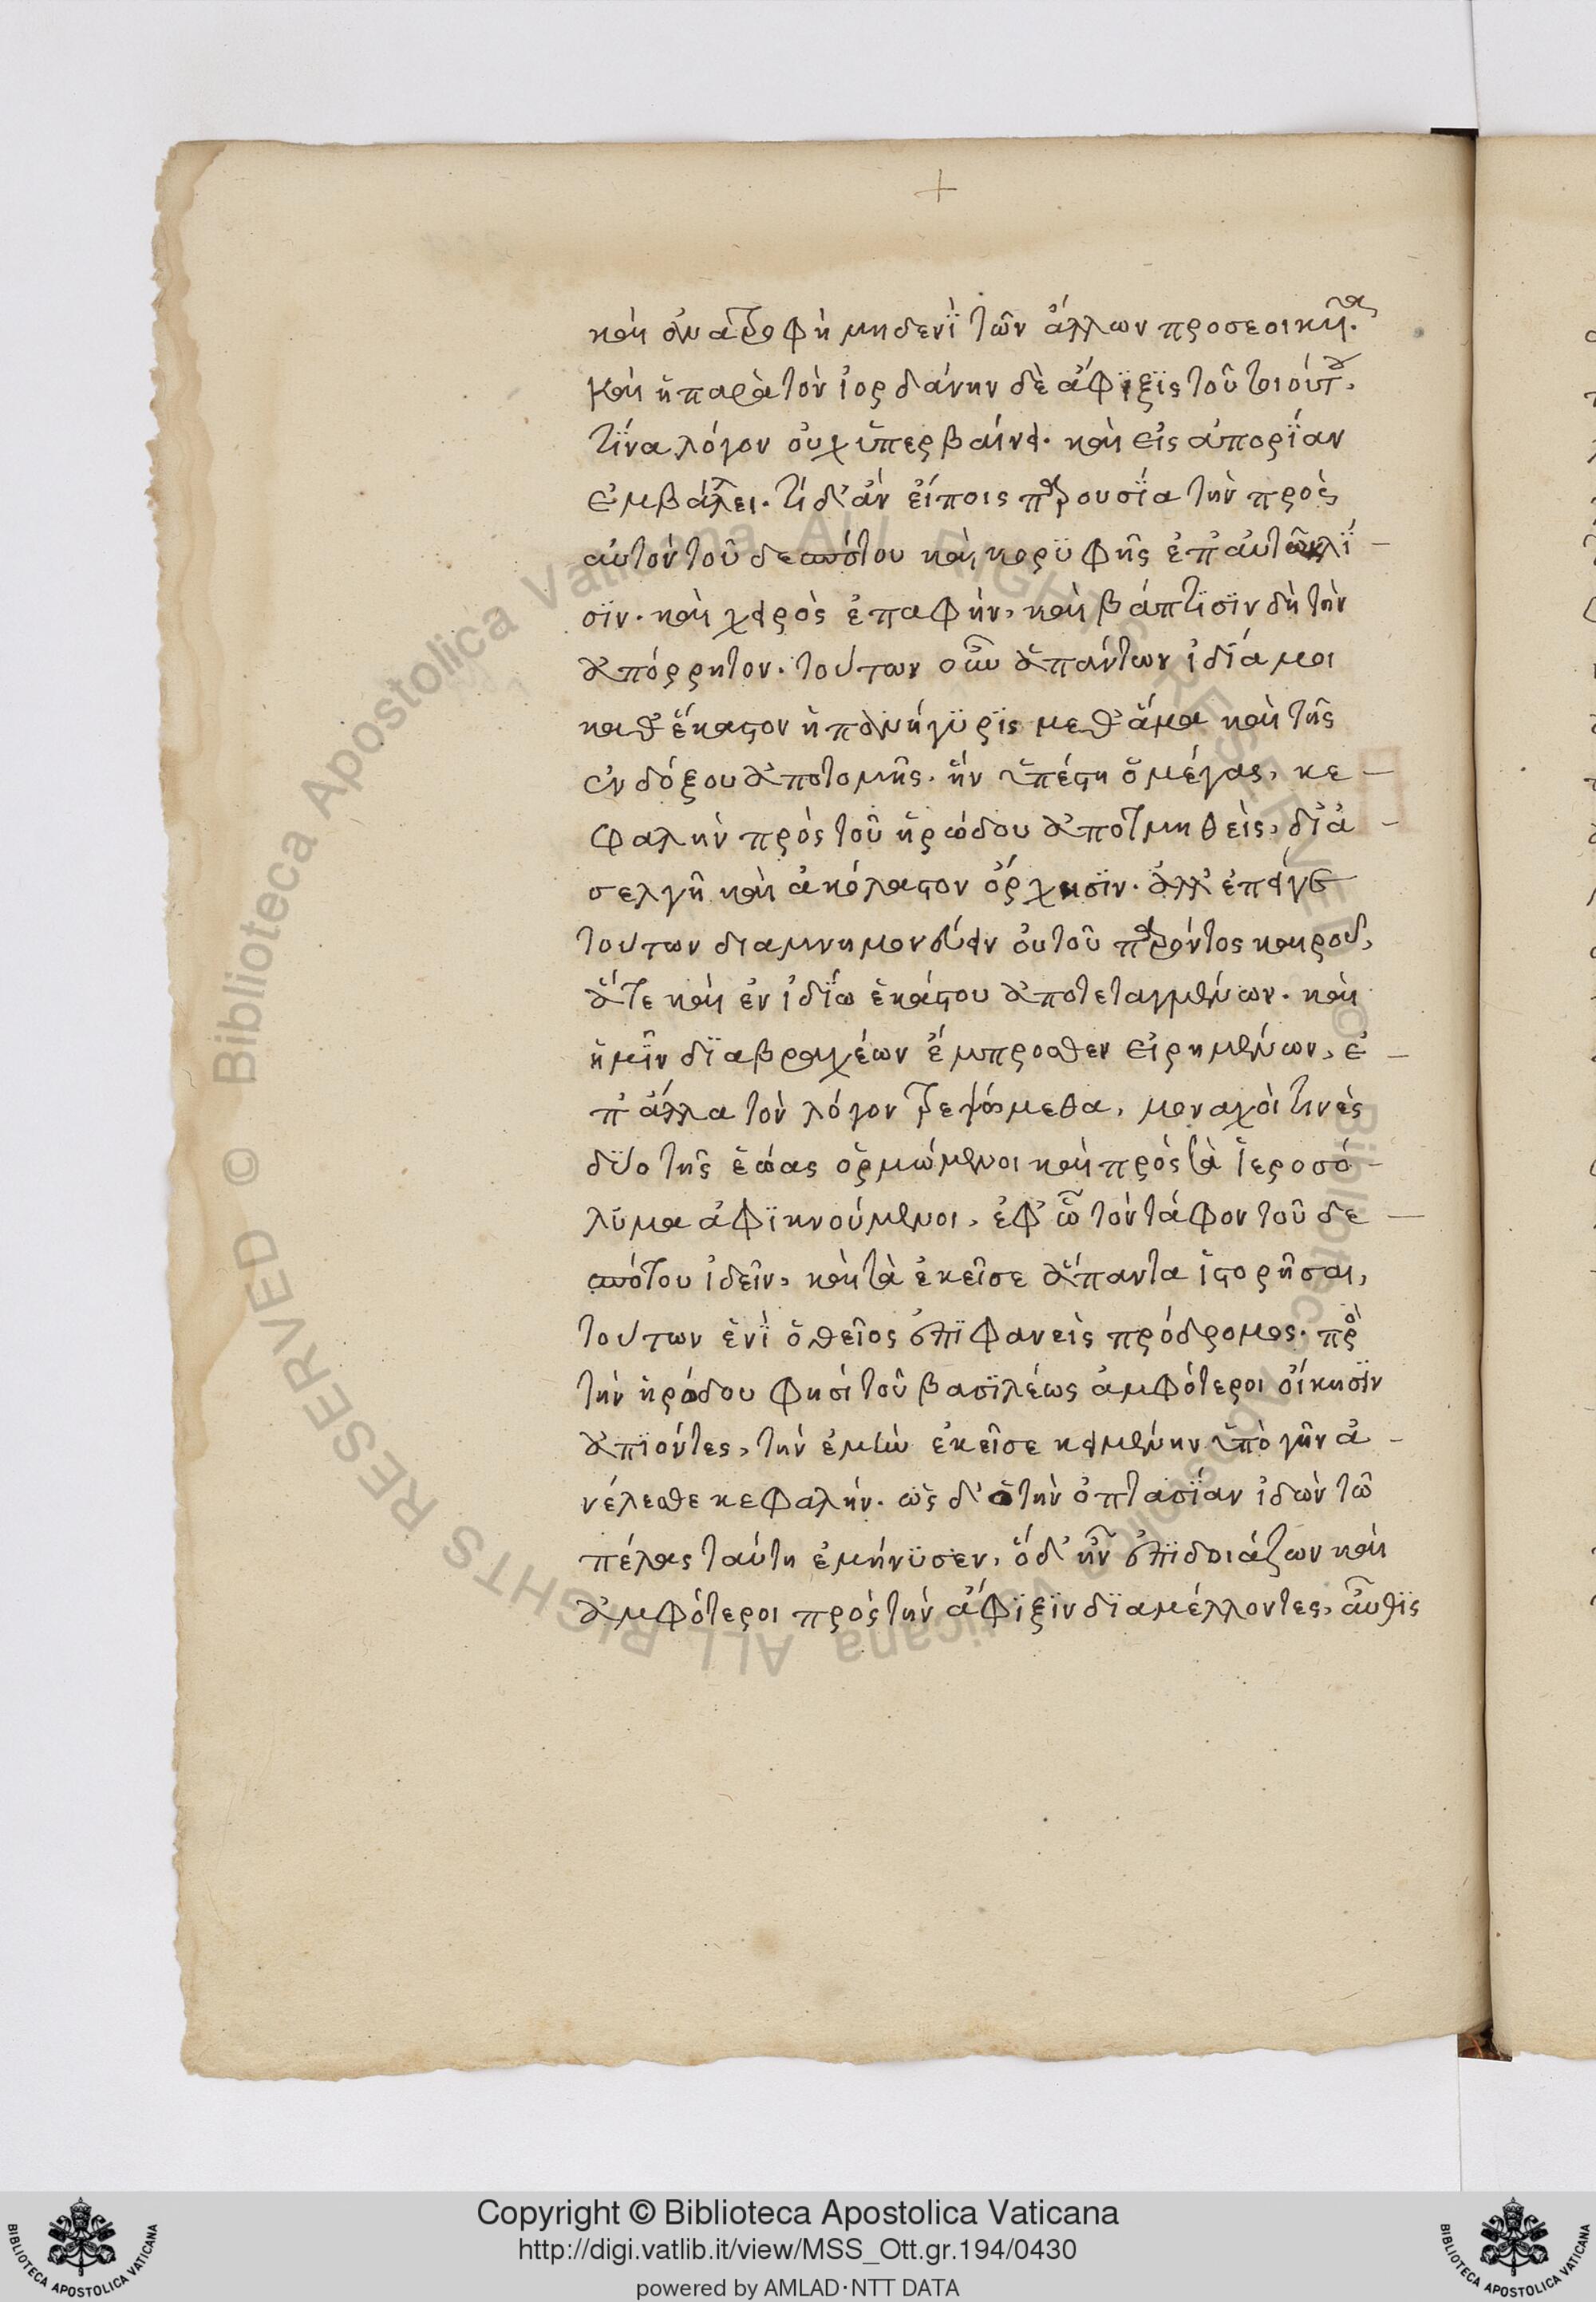 καὶ ἀναστροφὴ μηδενὶ τῶν ἄλλων προσεοικυῖα.
καὶ ἡ παρὰ τὸν ἰορδάνην δὲ ἄφιξις τοῦ τοιούτου.
τίνα λόγον οὐχ ὑπερβαίνει. καὶ εἰς ἀπορίαν
ἐμβάλλει. τί δ' ἂν εἴποις παρουσία τὴν πρὸς
αὐτὸν τοῦ δεσπότου καὶ κορυφῆς ἐπ' αὐτῶ κλί
σιν. καὶ χειρὸς ἐπαφήν, καὶ βάπτισιν δὴ τὴν
ἀπόρρητον. τούτων οὖν ἁπάντων ἰδία μοι
καθ' ἕκαστον ἡ πανήγυρις μεθ' ἅμα καὶ τῆς
ἐνδόξου ἀποτομῆς. ἣν ὑπέστη ὁ μέγας, κε
φαλὴν πρὸς τοῦ ἡρώδου ἀποτμηθεὶς, δι' ἀ
σελγῆ καὶ ἀκόλαστον ὄρχησιν. ἀλλ' ἐπείγε
τούτων διαμνημονεύειν οὐ τοῦ παρόντος καιροῦ,
ἅτε καὶ ἐν ἰδίω ἑκάστου ἀποτεταγμένων. καὶ
ἡμῖν διαβραχέων ἔμπροσθεν εἰρημένων, ἐ
π' ἄλλα τὸν λόγον τρεψόμεθα, μοναχοὶ τινὲς
δύο τῆς ἑώας ὁρμώμενοι καὶ πρὸς τὰ ἱεροσό
λυμα ἀφικνούμενοι, ἐφ' ὧ τὸν τάφον τοῦ δε
σπότου ἰδεῖν, καὶ τὰ ἐκεῖσε ἅπαντα ἱστορῆσαι,
τούτων ἑνὶ ὁ θεῖος ἐπιφανεὶς πρόδρομος. πρὸς
τὴν ἡρώδου φησὶ τοῦ βασιλέως ἀμφότεροι οἴκησιν
ἀπιόντες, τὴν ἐμὴν ἐκεῖσε κειμένην ὑπὸ γῆν ἀ
νέλεσθε κεφαλήν. ὡς δ' ὁ τὴν ὀπτασίαν ἰδὼν τῶ
πέλας ταύτη ἐμήνυσεν, ὅδ' ἦν ἐπιδοιάζων καὶ
ἀμφότεροι πρὸς τὴν ἄφιξιν διαμέλλοντες, αὖθις
Copyright © Biblioteca Apostolica Vaticana
http://digi.vatlib.it/view/MSS_Ott.gr.194/0430
powered by AMLAD·NTT DATA